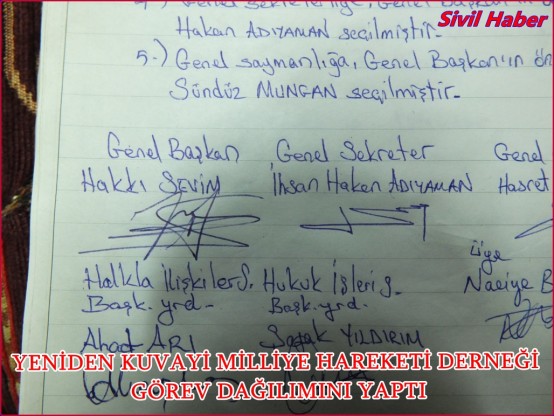 Sivil Haber
Hakan ADIYAMAN seçilmiştir.
5.) Genel saymanlığa, Genel Başkan'ın ön
Sündüz MUNGAN seçilmiştir.
Genel Başkan Genel Sekreter Genel
Hakkı SEVİM İhsan Hakan ADIYAMAN Hasret
Üye
Halkla İlişkiler S. Hukuk İşleri S. Naciye B
Başk. yrd. Başk. yrd.
Ahat ARI Şafak YILDIRIM
YENİDEN KUVAYİ MİLLİYE HAREKETİ DERNEĞİ
GÖREV DAĞILIMINI YAPTI